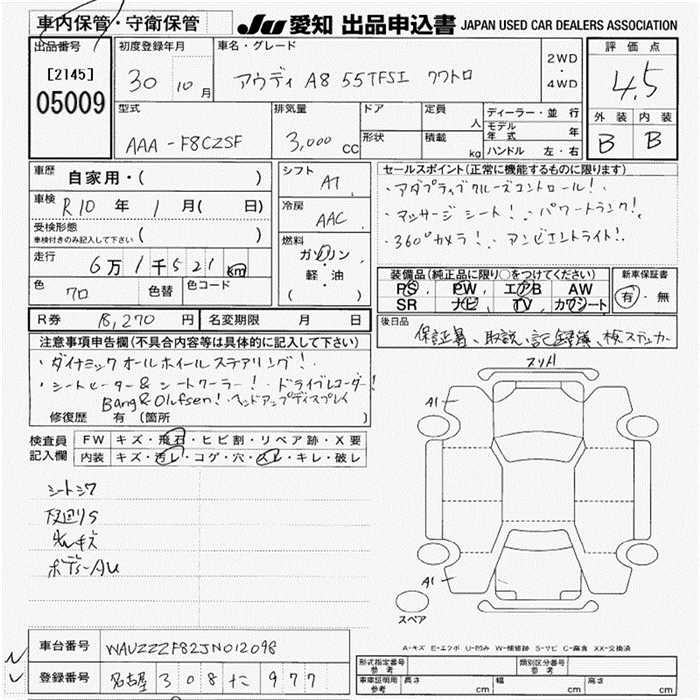 車内保管・守衛保管
JU 愛知 出品申込書 JAPAN USED CAR DEALERS ASSOCIATION
出品番号
[2145]
05009
初度登録年月
30 10 月
車名・グレード
アウディ A8 55TFSI クワトロ
2WD
・
4WD
評価点
4.5
外装 内装
B B
型式
AAA-F8CZSF
排気量
3,000 cc
ドア
形状
定員 人
積載 kg
ディーラー・並行
モデル年式 年
ハンドル 左・右
車歴 自家用・( )
車検 R10 年 1 月( 日)
受検形態
車検付きのみ記入して下さい ( )
走行 6万1千521 km
色 クロ 色替 色コード
シフト AT
冷房 AAC
燃料
ガソリン
・
軽・油
( )
セールスポイント(正常に機能するものに限ります)
・アダプティブクルーズコントロール!
・マッサージシート!・パワートランク!
・360°カメラ!・アンビエントライト!
装備品(純正品に限り○をつけてください)
PS PW エアB AW
SR ナビ TV カワシート
新車保証書
有・無
R券 18,270 円 名変期限 月 日
後日品
保証書、取説、記録簿、検ステッカー
注意事項申告欄(不具合内容等は具体的に記入して下さい)
・ダイナミックオールホイールステアリング!
・シートヒーター&シートクーラー!・ドライブレコーダー!
Bang&Olufsen!・ヘッドアップディスプレイ
修復歴 有(箇所 )
検査員
記入欄
FW キズ・飛石・ヒビ割・リペア跡・X要
内装 キズ・汚レ・コゲ・穴・スレ・キレ・破レ
シートシワ
ボディーAU
スリA1
A1
A1
スペア
A-キズ E-エクボ U-凹み W-補修跡 S-サビ C-腐食 XX-交換済
車台番号 WAUZZZF82JN012098
登録番号 名古屋 308 た 977
形式指定番号 参考
類別区分番号 参考
車庫証明用 参考 長さ cm 幅 cm 高さ cm